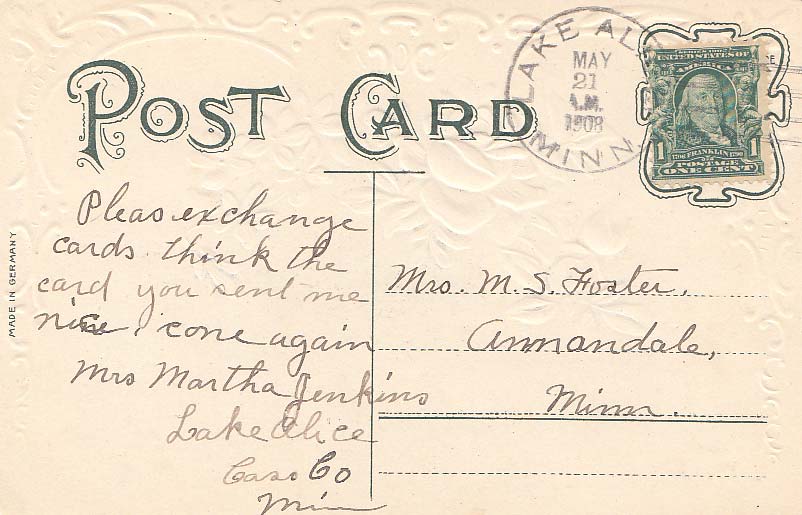 POST CARD
LAKE AL
MAY
21
A.M.
1908
MINN.
SERIES 1902
UNITED STATES OF
AMERICA
1 1706 FRANKLIN 1790 1
POSTAGE
ONE CENT
MADE IN GERMANY
Pleas exchange
cards think the
card you sent me
nice, cone again
Mrs Martha Jenkins
Lake Alice
Cass Co
Minn
Mrs. M. S. Foster,
Annandale,
Minn.